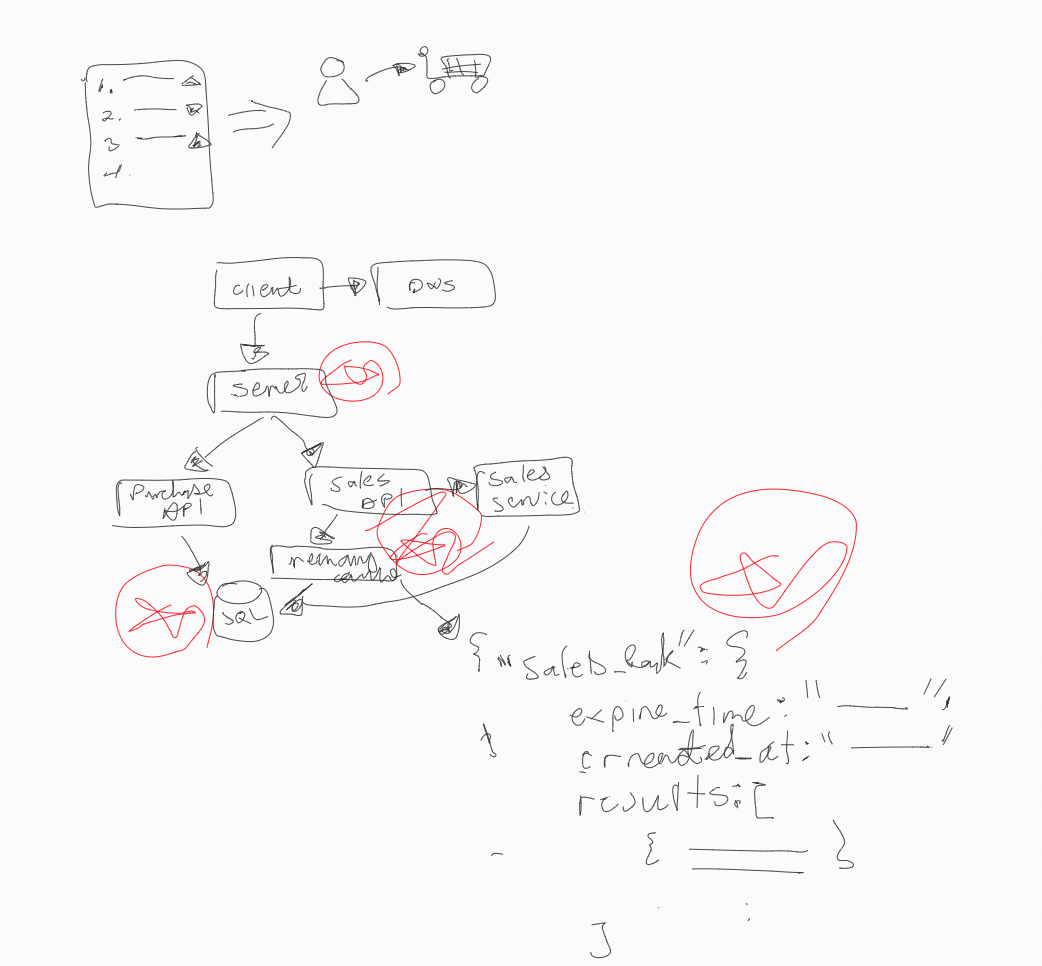 1.
2.
3
4.
client
DNS
server
Purchase
API
Sales
API
Sales
service
SQL
{ "sales_
": {
expire_time: "
",
crneated_at: "
"
results: [
{
}
]